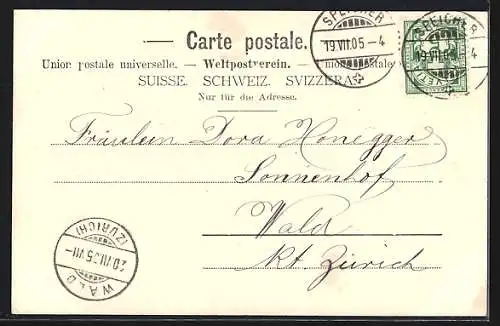 — Carte postale.
Union postale universelle. — Weltpostverein. — Unione postale
SUISSE. SCHWEIZ. SVIZZERA.
Nur für die Adresse.
SPEICHER
19.VII.05-4
SPEICHER
19.VII.05-4
Fräulein Dora Honegger
Sonnenhof
Wald
Kt. Zürich
(ZÜRICH)
20.VII.05.VII-
WALD